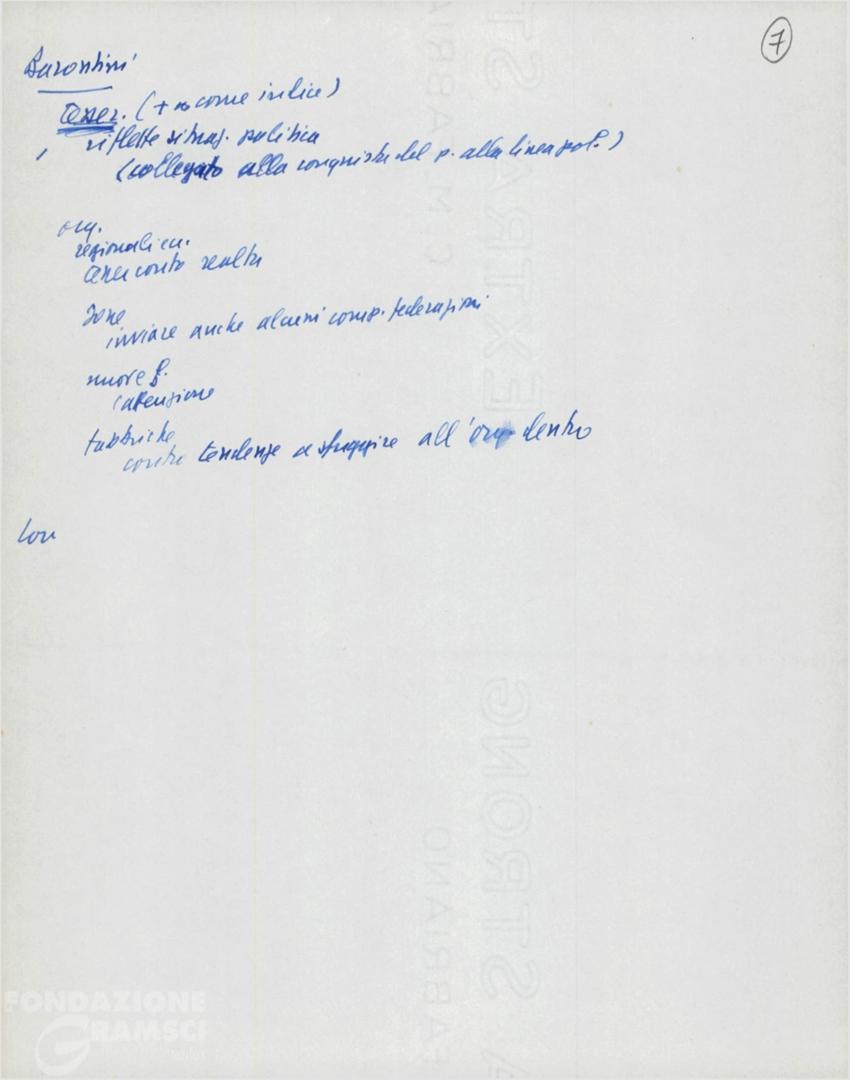 7
Barontini
tesser. (+ o come indice)
riflette situaz. politica
(collegato alla conquista del p. alla linea pol.)
org.
regionali
tener conto realtà
zone
inviare anche alcuni comp. federazioni
nuove f.
attenzione
fabbriche
contro tendenze a sfuggire all'org. dentro
EXTRA STRONG
FABRIANO
FONDAZIONE
GRAMSCI